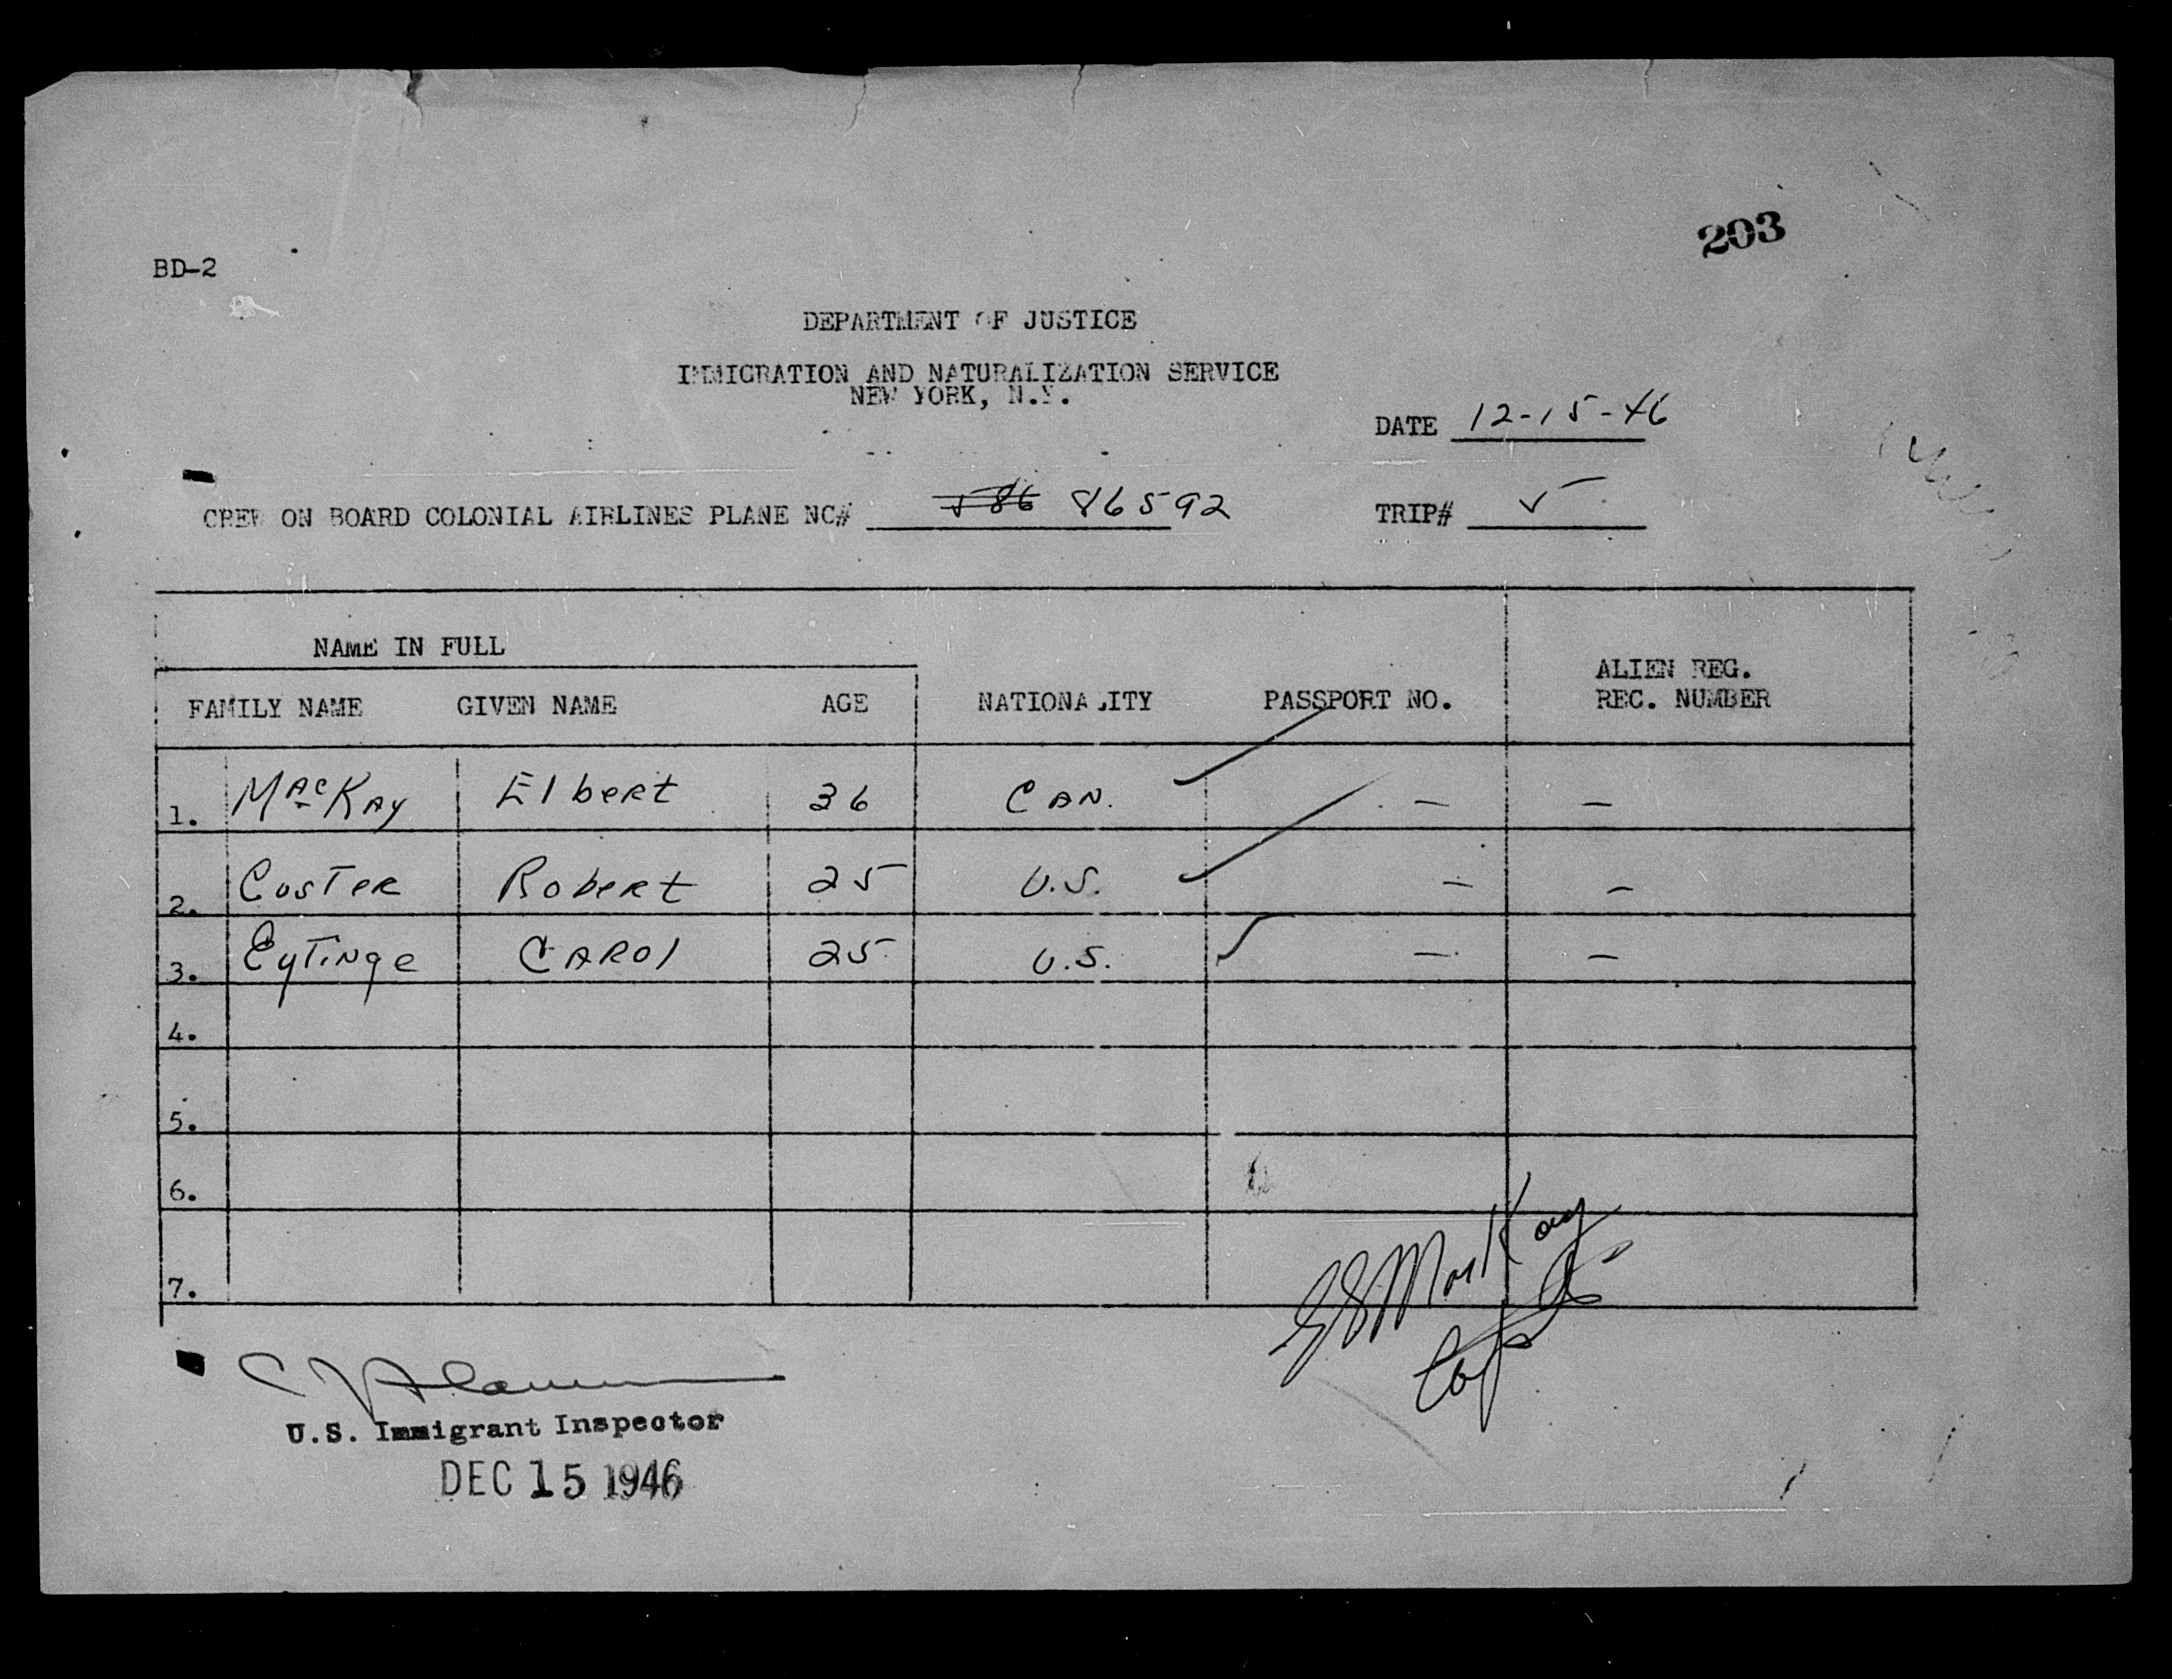 203
BD-2
DEPARTMENT OF JUSTICE
IMMIGRATION AND NATURALIZATION SERVICE
NEW YORK, N.Y.
DATE 12-15-46
CREW ON BOARD COLONIAL AIRLINES PLANE NC# 86592
TRIP# 5
NAME IN FULL
FAMILY NAME GIVEN NAME AGE NATIONALITY PASSPORT NO. ALIEN REG. REC. NUMBER
1. MacKay Elbert 36 CAN. — —
2. Coster Robert 25 U.S. — —
3. Eytinge CAROl 25 U.S. — —
4.
5.
6.
7.
MacKay
Capt
U.S. Immigrant Inspector
DEC 15 1946